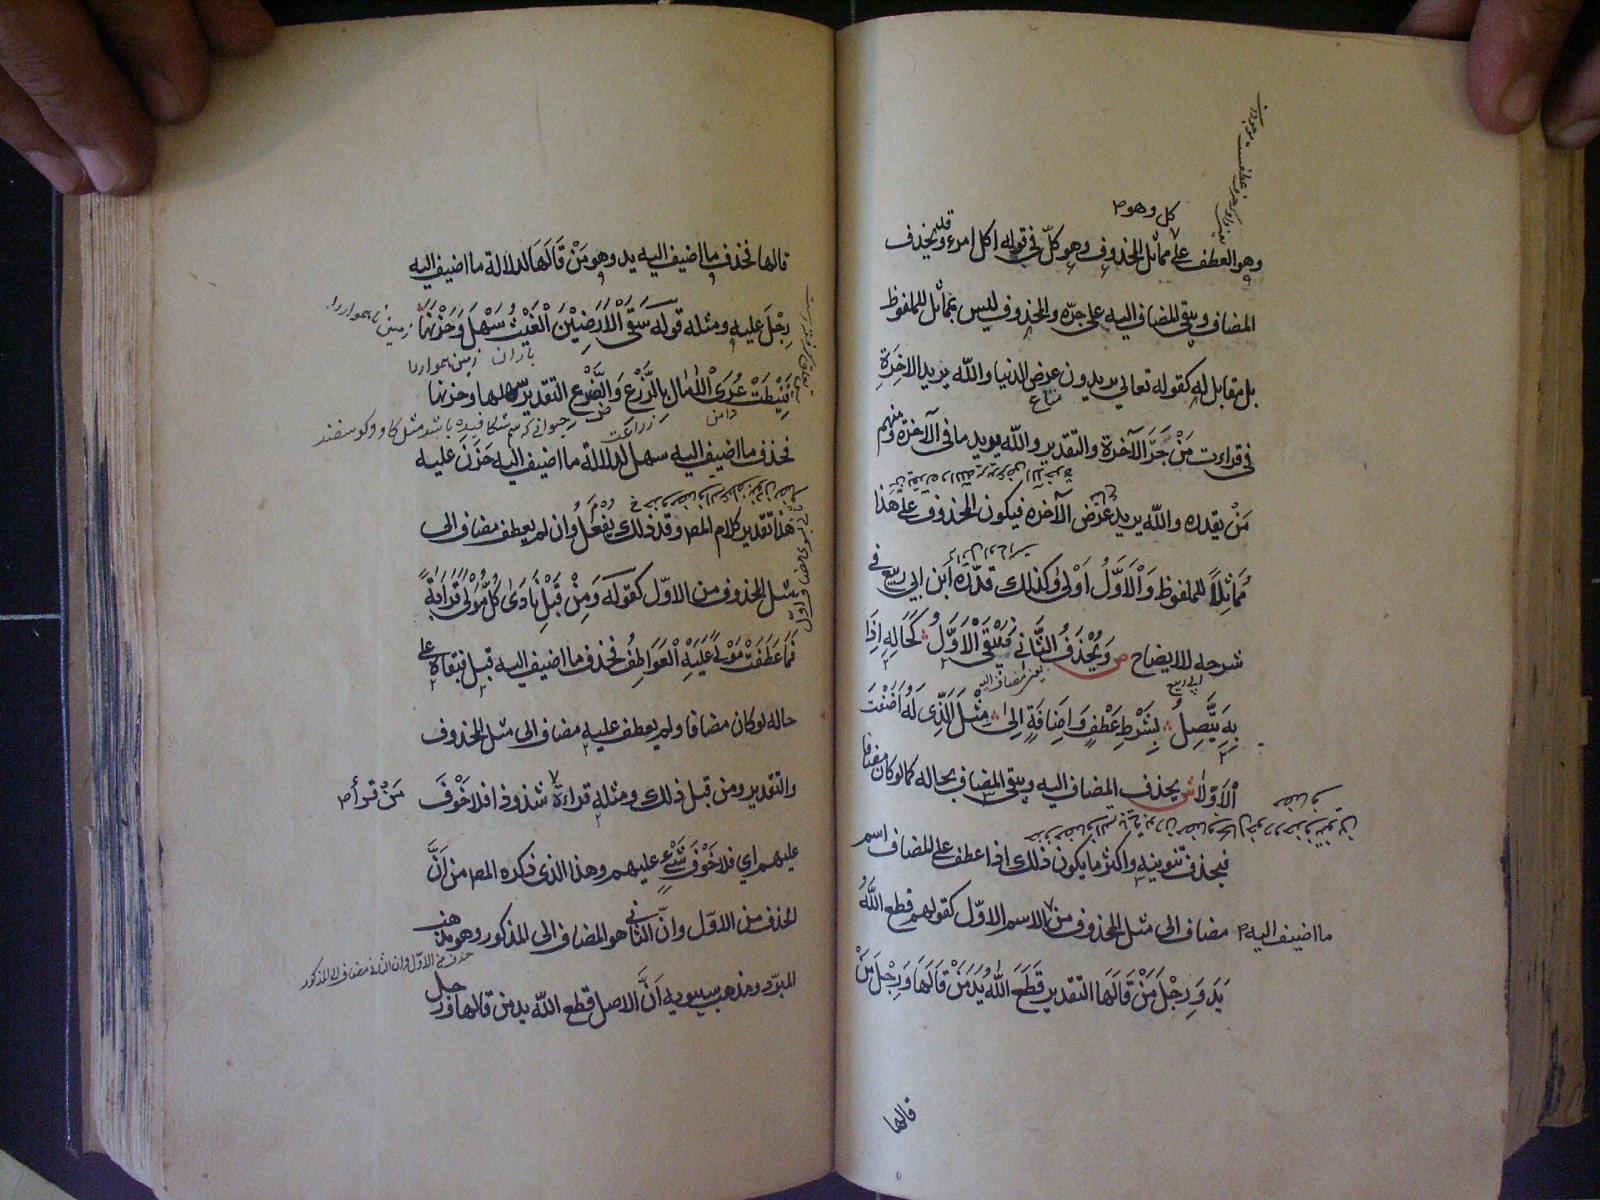 كل وهو م
وهو العطف على مماثل المحذوف وهو كلّ في قوله اكل امرء وقد يحذف
المضاف ويبقى المضاف اليه على جرّه والمحذوف ليس بمماثل للملفوظ
بل مقابل له كقوله تعالى يريدون عرض الدنيا والله يريد الاخرَةِ
متاع
في قراءت مَنْ جَرَّ الآخرة والتقدير والله يريد ما في الآخرة ومنهم
مَنْ يقدره والله يريد عَرَضَ الآخرة فيكون المحذوف على هَذا
مُمَاثِلاً للملفوظ وَالْاَوَّلُ اَوْلى وكذلك قدّره اَبن ابي ربيع في
شرحه للايضاح ص وَيُحْذَفُ الثَّانِي فَيَبْقَى الْاَوَّلُ كَحَالِهِ اِذَا
ابي ربيع
يعنى مضاف اليه
بِهِ يَتَّصِلُ بِشَرْطِ عَطْفٍ وَاِضَافَةٍ اِلىٰ مِثْلِ الَّذِى لَهُ اَضَفْتَ
الْاَوّلاَ ش يحذف المضاف اليه ويبقى المضاف بحاله كما لو كان مضافا
فيحذف تنوينه واكثر ما يكون ذلك اذا عطف على المضاف اسم
مضاف الى مثل المحذوف من الاسم الاوّل كقولهم قطع اللّهُ
ما اضيف اليه م
يَدَ وَرِجْلَ مَنْ قَالَهَا التقدير قَطَعَ اللّهُ يَدَ مَنْ قَالَهَا وَرِجْلَ مَنْ
قالها
قالها فحذف ما اضيف اليه يد وهو مَنْ قَالَهَا لدلالة ما اضيف اليه
رِجْلَ عليه ومثله قوله سَقَى الْاَرَضِيْنَ الْغَيْثُ سَهْلَ وَحَزْنَهَا
زمين ناهموار را
باران
زمين هموار را
فَنِيْطَتْ عُرَى الْاٰمَال بِالزَّرْعِ وَالضَّرْعِ التقدير سهلها وحزنها
دامن
زراعت
حيوانے که سم شكافيده باشد مثل كاو وكوسفند
فحذف ما اضيف اليه سهل لدلالة ما اضيف اليه حَزَنَ عليه
هذا تقدير كلام المصـ وقد ذلك يَفْعَلُ وان لم يعطف مضاف الى
مثل المحذوف من الاوّل كقوله وَمِنْ قَبْلِ نَادَى كُلُّ مَوْلى قَرَابَةً
فَمَا عَطَفَتْ مَوْلىً عَلَيْهِ الْعَوَاطِفُ فحذف ما اضيف اليه قبل فبقاه على
حاله لو كان مضافا ولم يعطف عليه مضاف الى مثل المحذوف
والتقدير ومن قبل ذلك ومثله قراءة شذوذا فلا خَوْفَ
مَنْ قرأ م
عليهم اي فلا خَوْفَ شَيْءٍ عليهم وهذا الذى ذكره المصـ من اَنَّ
الحذف من الاوّل وانّ الثانى هو المضاف الى المذكور وهو مذهب
حذف من الاوّل وان الثانى مضاف الى المذكور
المبرّد ومذهب سيبويه اَنَّ الاصل قطع اللّه يد من قالها ورجل